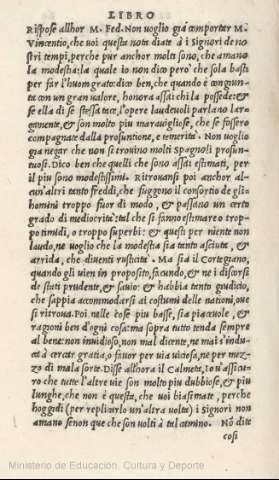 LIBRO
Rispose allhor M. Fed. Non uoglio già comporter M.
Vincentio, che uoi questa nota diate à i Signori de no
stri tempi, perche pur anchor molti sono, che amano
la modestia: la quale io non dico però che sola basti
per far l'huom grato: dico ben, che quando è congiun-
ta con un gran valore, honora assai chi la possede: &
se ella di se stessa tace, l'opere laudeuoli parlano lar-
gamente, & son molto piu marauigliose, che se fossero
compagnate dalla prosuntione, e temerità. Non uoglio
gia negar che non si trouino molti Spagnoli prosun-
tuosi. Dico ben che quelli che sono assai estimati, per
il piu sono modestissimi. Ritrouansi poi anchor al-
cun'altri tanto freddi, che fuggono il consortio de gli
homini troppo fuor di modo, & passano un certo
grado di mediocrità: tal che si fanno estimare o trop-
po timidi, o troppo superbi: & questi per niente non
laudo, ne uoglio che la modestia sia tanto asciutta, &
arrida, che diuenti rusticità. Ma sia il Cortegiano,
quando gli uien in proposito, facundo, & ne i discorsi
de stati prudente, & sauio: & habbia tanto giudicio,
che sappia accommodarsi ai costumi delle nationi, oue
si ritroua. Poi nelle cose piu basse, sia piaceuole, &
ragioni ben d'ogni cosa: ma sopra tutto tenda sempre
al bene: non inuidioso, non mal dicente, ne mai s'indu-
ca à cercar gratia, o fauor per uia uitiosa, ne per mez-
zo di mala sorte. Disse allhora il Calmeta, Io u'assicu-
ro che tutte l'altre uie son molto piu dubbiose, & piu
lunghe, che non è questa, che uoi biasimate, perche
hoggidi (per replicarlo un'altra uolta) i Signori non
amano senon que che son uolti à tal camino. Nō dite
cosi
Ministerio de Educación, Cultura y Deporte